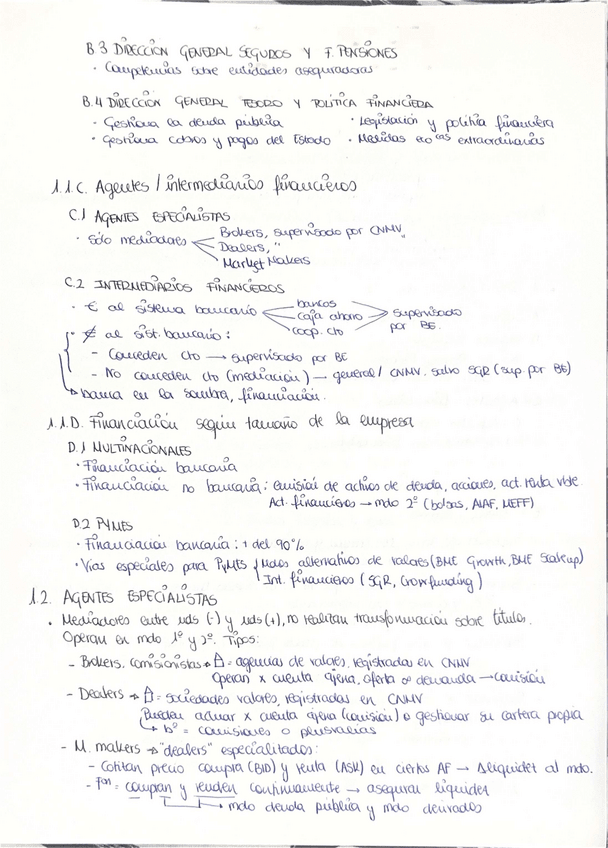 B.3 DIRECCIÓN GENERAL SEGUROS Y F. PENSIONES
· Competencias sobre entidades aseguradoras
B.4 DIRECCIÓN GENERAL TESORO Y POLÍTICA FINANCIERA
- Gestiona la deuda pública · Legislación y política financiera
· Gestiona cobros y pagos del Estado · Medidas ecocas extraordinarias
1.1.C. Agentes / intermediarios financieros
C.1 AGENTES ESPECIALISTAS
· Sólo mediadores Brokers, supervisado por CNMV
Dealers, "
Market Makers
C.2 INTERMEDIARIOS FINANCIEROS
· € al sistema bancario bancos
caja ahorro supervisado
coop. cto por BE.
· ∉ al sist. bancario:
- Conceden cto → supervisado por BE
- No conceden cto (mediación) → general / CNMV. salvo SGR (sup. por BE)
→ banca en la sombra, financiación.
1.1.D. Financiación según tamaño de la empresa
D.1 MULTINACIONALES
· Financiación bancaria
· Financiación no bancaria: emisión de activos de deuda, acciones, act. renta vble
Act. financieros → mdo 2º (bolsas, AIAF, MEFF)
D.2 PYMES
· Financiación bancaria: + del 90%
· Vías especiales para PYMES Mdos alternativos de valores (BME Growth, BME Scaleup)
Int. financieros (SGR, Crowfunding)
1.2. AGENTES ESPECIALISTAS
· Mediadores entre uds (-) y uds (+), no realizan transformación sobre títulos.
Operan en mdo 1º y 2º. Tipos:
- Brokers, comisionistas → = agencias de valores, registradas en CNMV
Operan x cuenta ajena, oferta ∞ demanda → comisión
- Dealers → = sociedades valores, registradas en CNMV
Pueden actuar x cuenta ajena (comisión) o gestionar su cartera propia
→ bº = comisiones o plusvalías
- M. makers → "dealers" especializados:
- Cotizan precio compra (BID) y venta (ASK) en ciertos AF → liquidez al mdo.
- Fon = compran y venden continuamente → asegurar liquidez
→ mdo deuda pública y mdo derivados